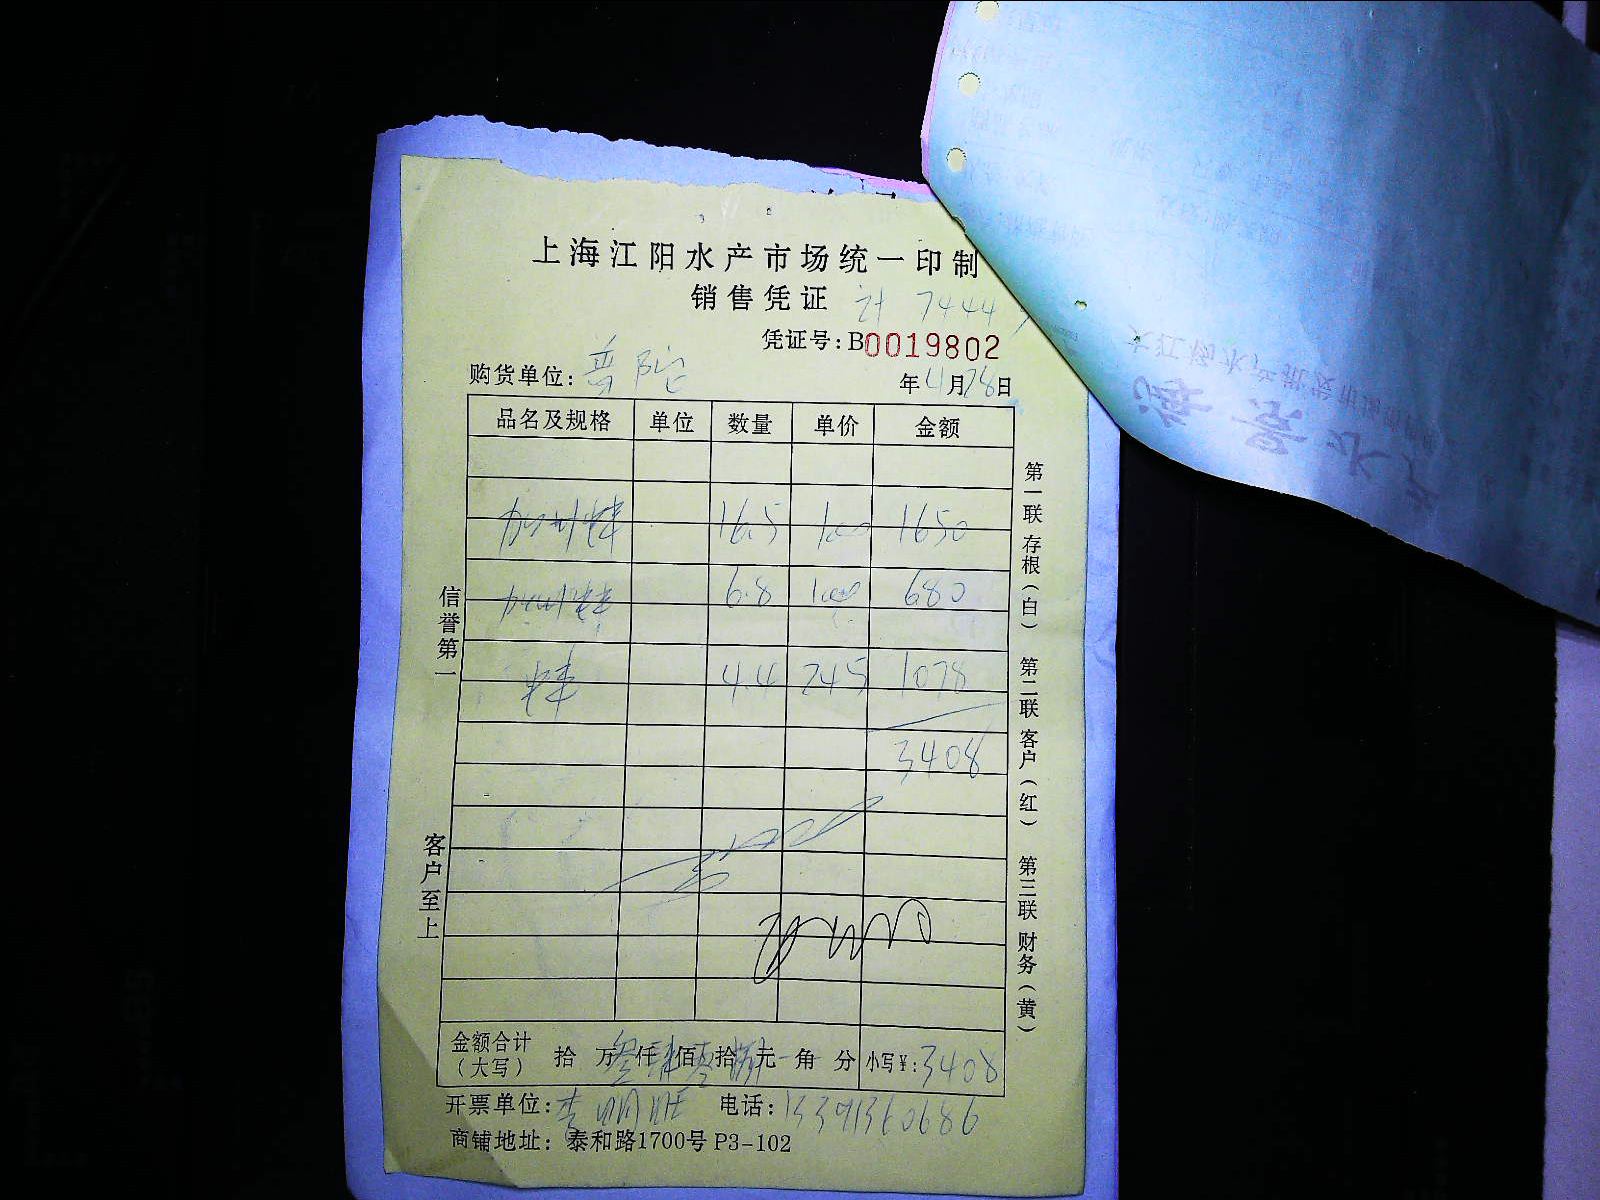 上海江阳水产市场统一印制
销售凭证 计 7444
凭证号:B0019802
购货单位: 普陀 年4月28日
品名及规格 单位 数量 单价 金额
加州蚌 16.5 100 1650
加州蚌 6.8 100 680
蚌 4.4 245 1078
3408
金额合计（大写） 拾 万叁仟肆佰零拾捌元 角 分 小写¥:3408
开票单位:李明旺 电话:13391360686
商铺地址: 泰和路1700号 P3-102
信誉第一 客户至上
第一联 存根（白） 第二联 客户（红） 第三联 财务（黄）